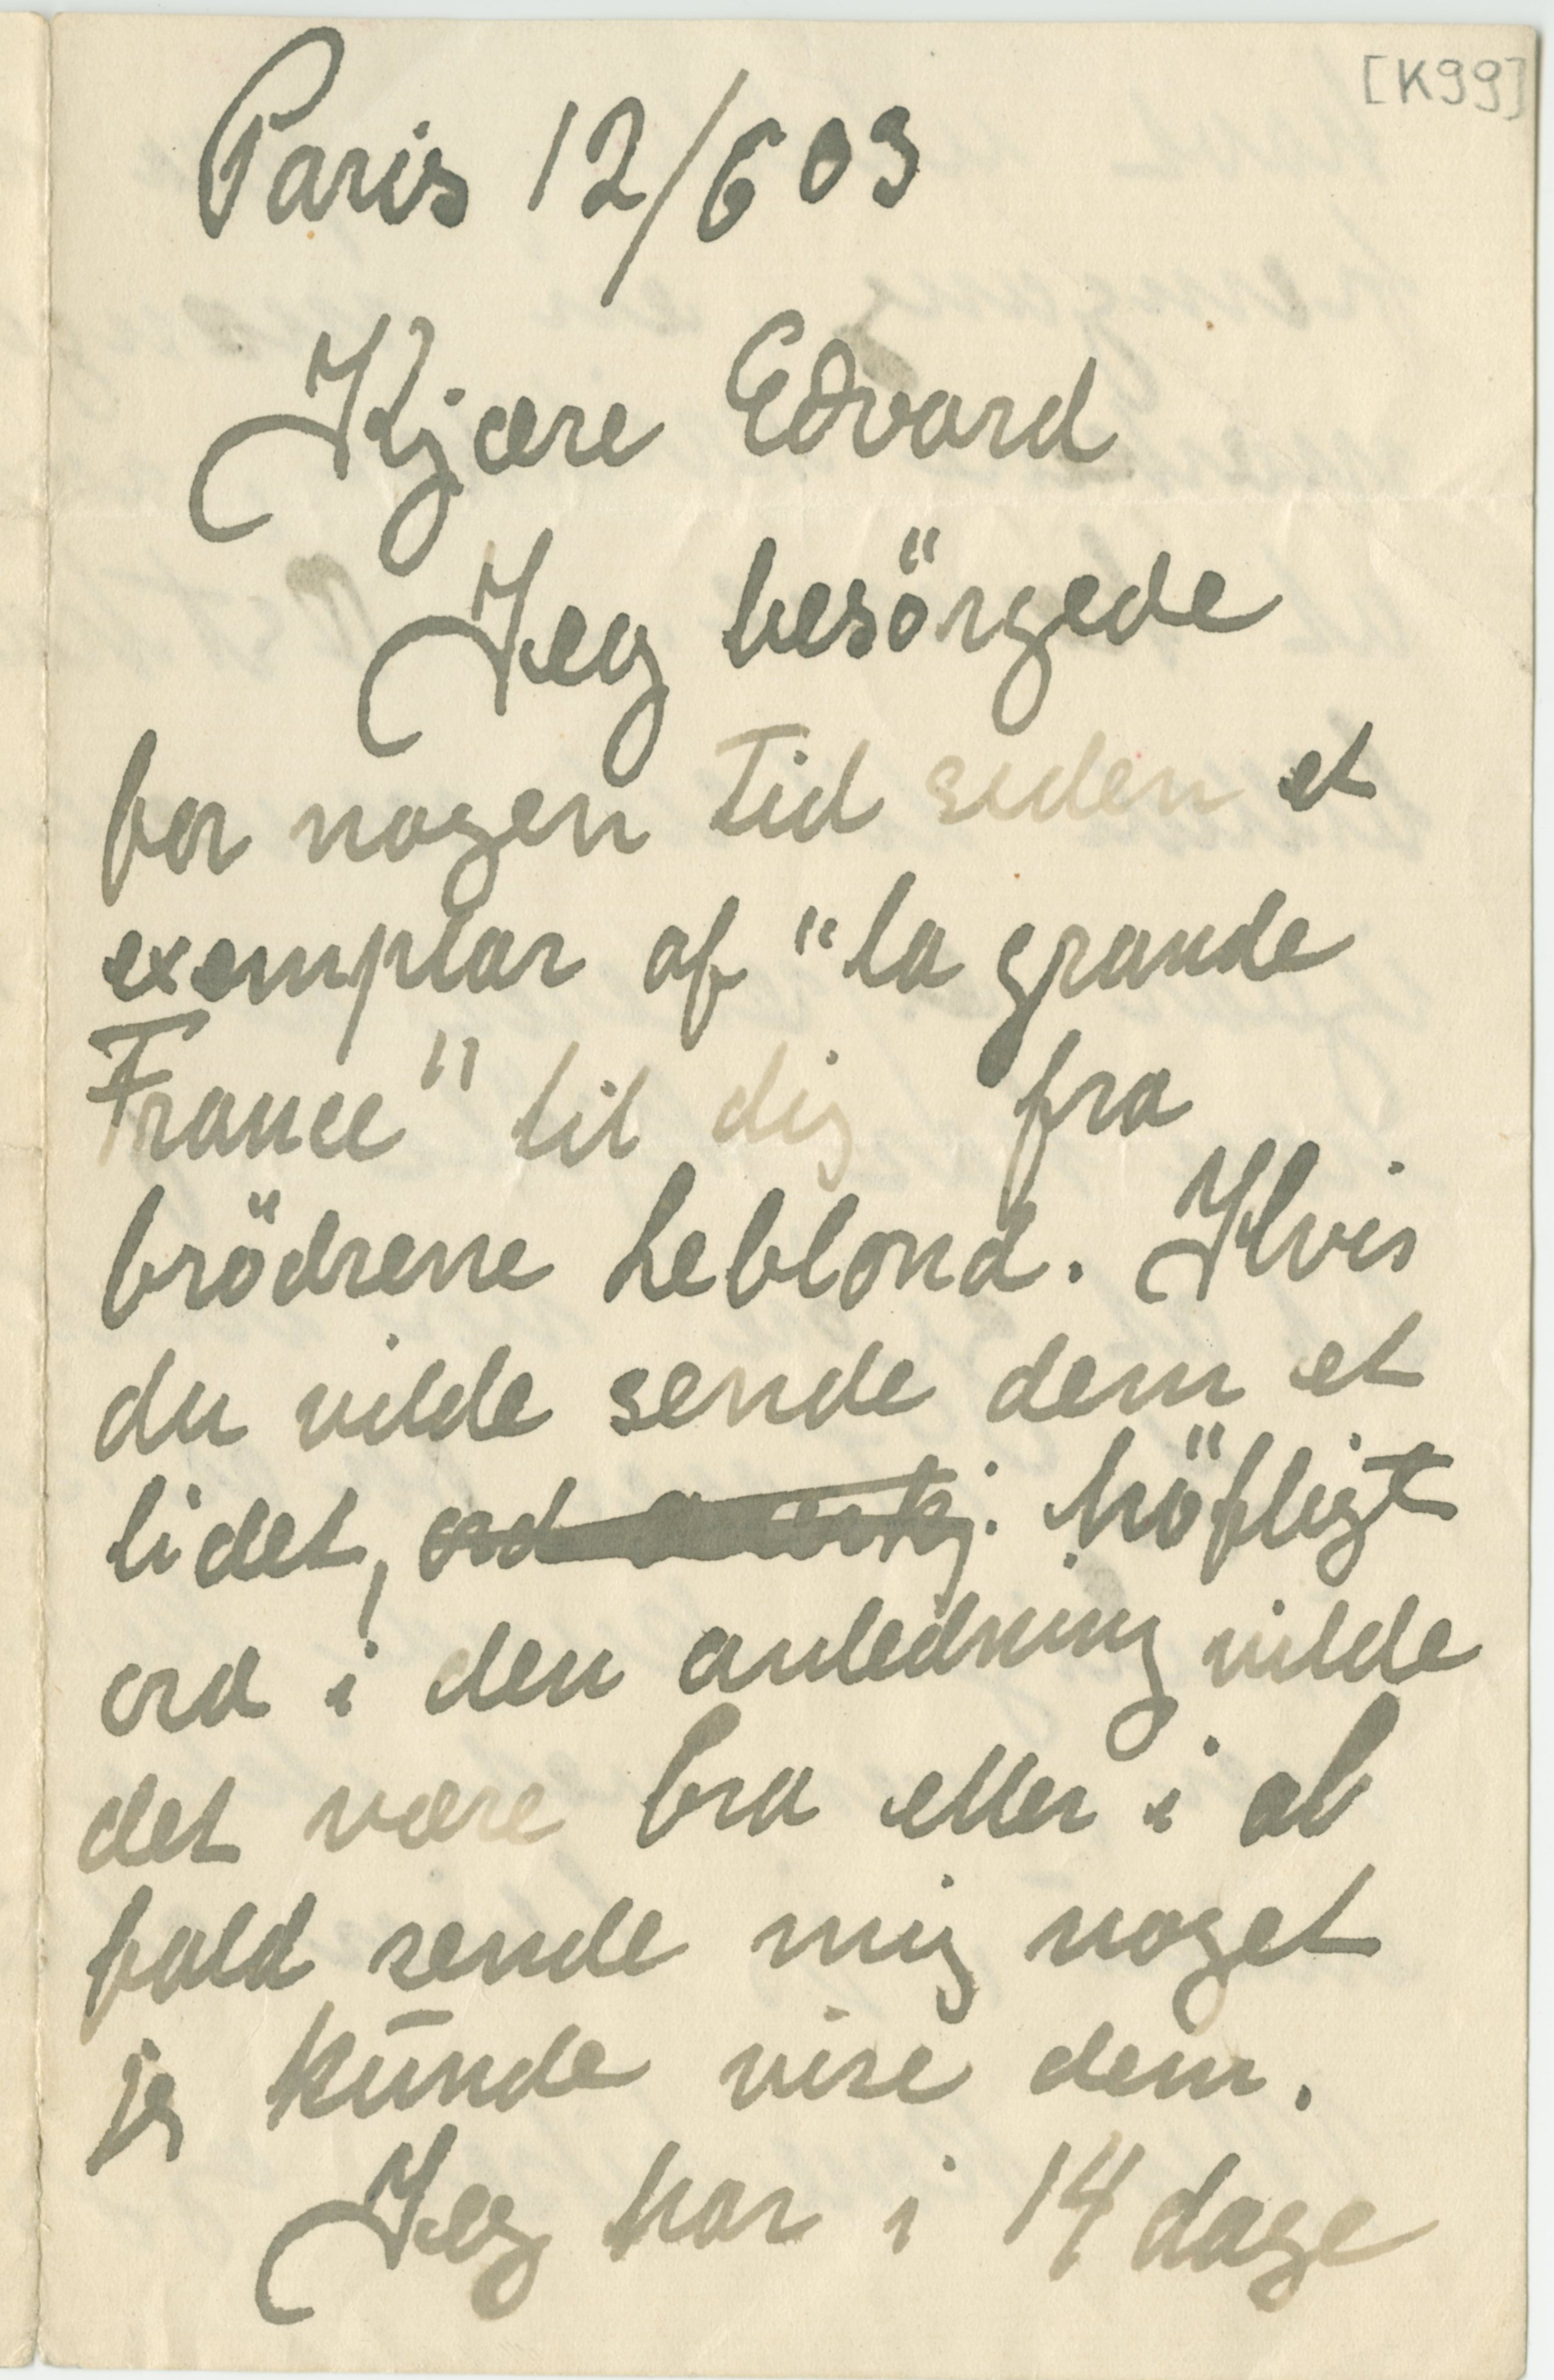 [K99]
Paris 12/6 03
Kjære Edvard
Jeg besörgede
for nogen Tid siden et
exemplar af "la grande
France" til dig fra
brödrene Leblond. Hvis
du vilde sende dem et
lidet, höfligt
ord i den anledning vilde
det være bra eller i al
fald sende mig noget
jeg kunde vise dem.
Jeg har i 14 dage